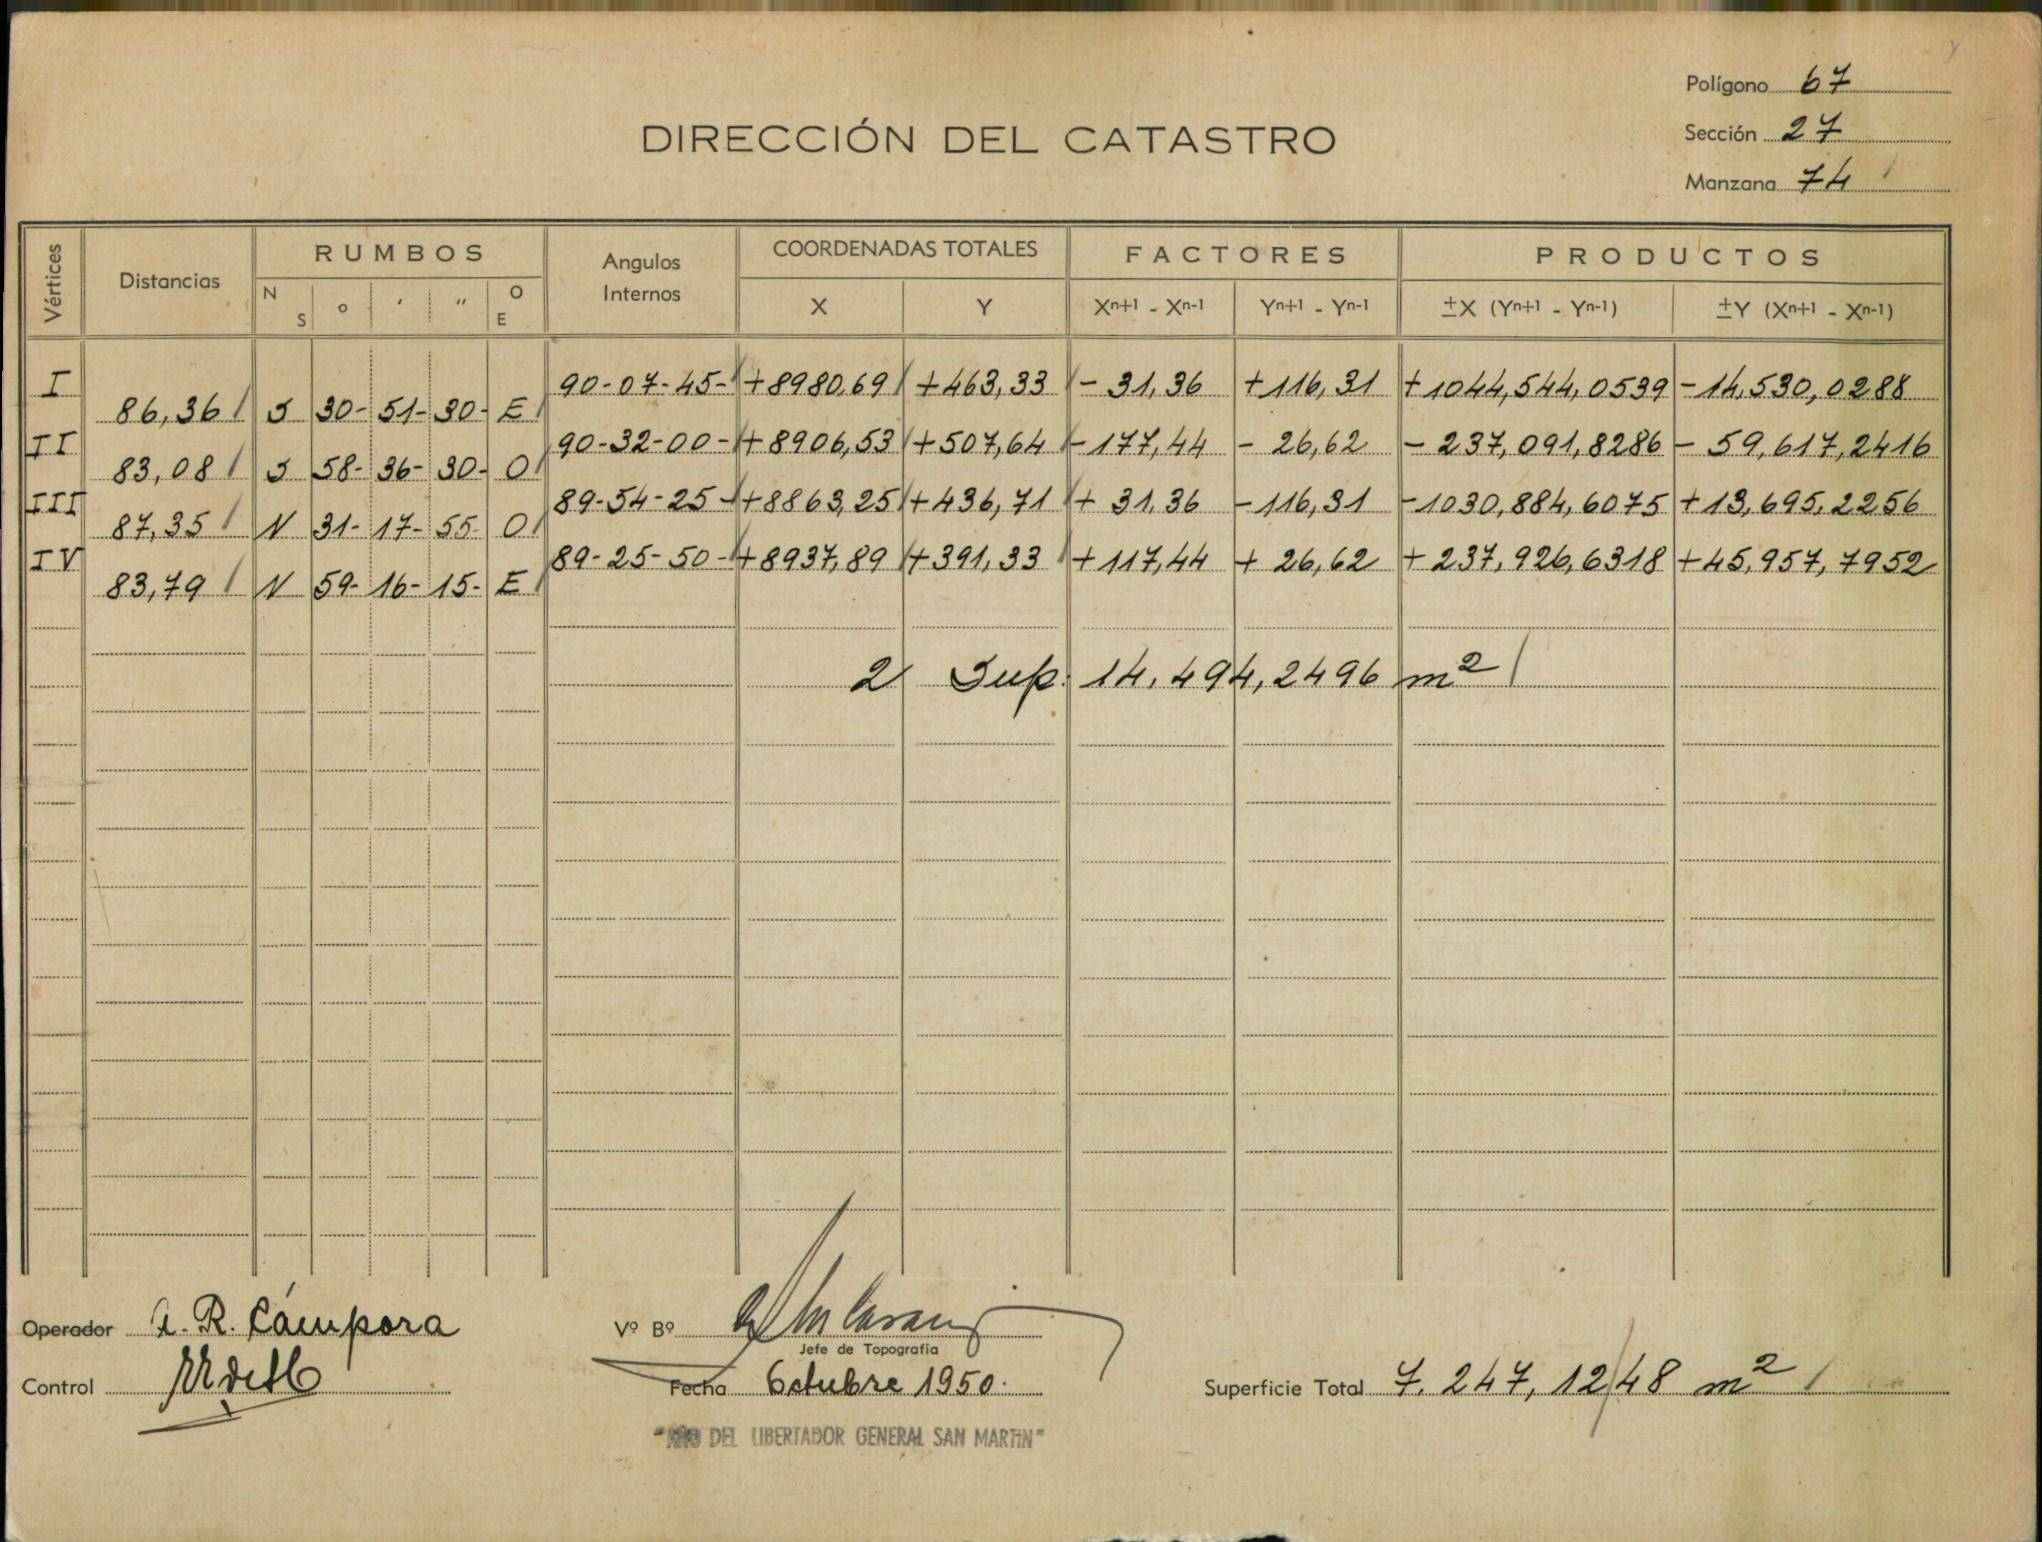 Polígono 67
DIRECCIÓN DEL CATASTRO
Sección 27
Manzana 74
Vértices Distancias RUMBOS Angulos Internos COORDENADAS TOTALES FACTORES PRODUCTOS
N S o ′ ″ O E X Y Xn+1 - Xn-1 Yn+1 - Yn-1 ±X (Yn+1 - Yn-1) ±Y (Xn+1 - Xn-1)
I 90-07-45- +8980,69 +463,33 -31,36 +116,31 +1044,544,0539 -14,530,0288
86,36 S 30- 51- 30- E
II 90-32-00- +8906,53 +507,64 -177,44 -26,62 -237,091,8286 -59,617,2416
83,08 S 58- 36- 30- O
III 89-54-25- +8863,25 +436,71 +31,36 -116,31 -1030,884,6075 +13,695,2256
87,35 N 31- 17- 55- O
IV 89-25-50- +8937,89 +391,33 +117,44 +26,62 +237,926,6318 +45,957,7952
83,79 N 59- 16- 15- E
2 Sup. 14.494,2496 m²
Operador A. R. Cámpora
Vº Bº
Jefe de Topografía
Control
Fecha Octubre 1950.
Superficie Total 7.247,1248 m²
"AÑO DEL LIBERTADOR GENERAL SAN MARTIN"